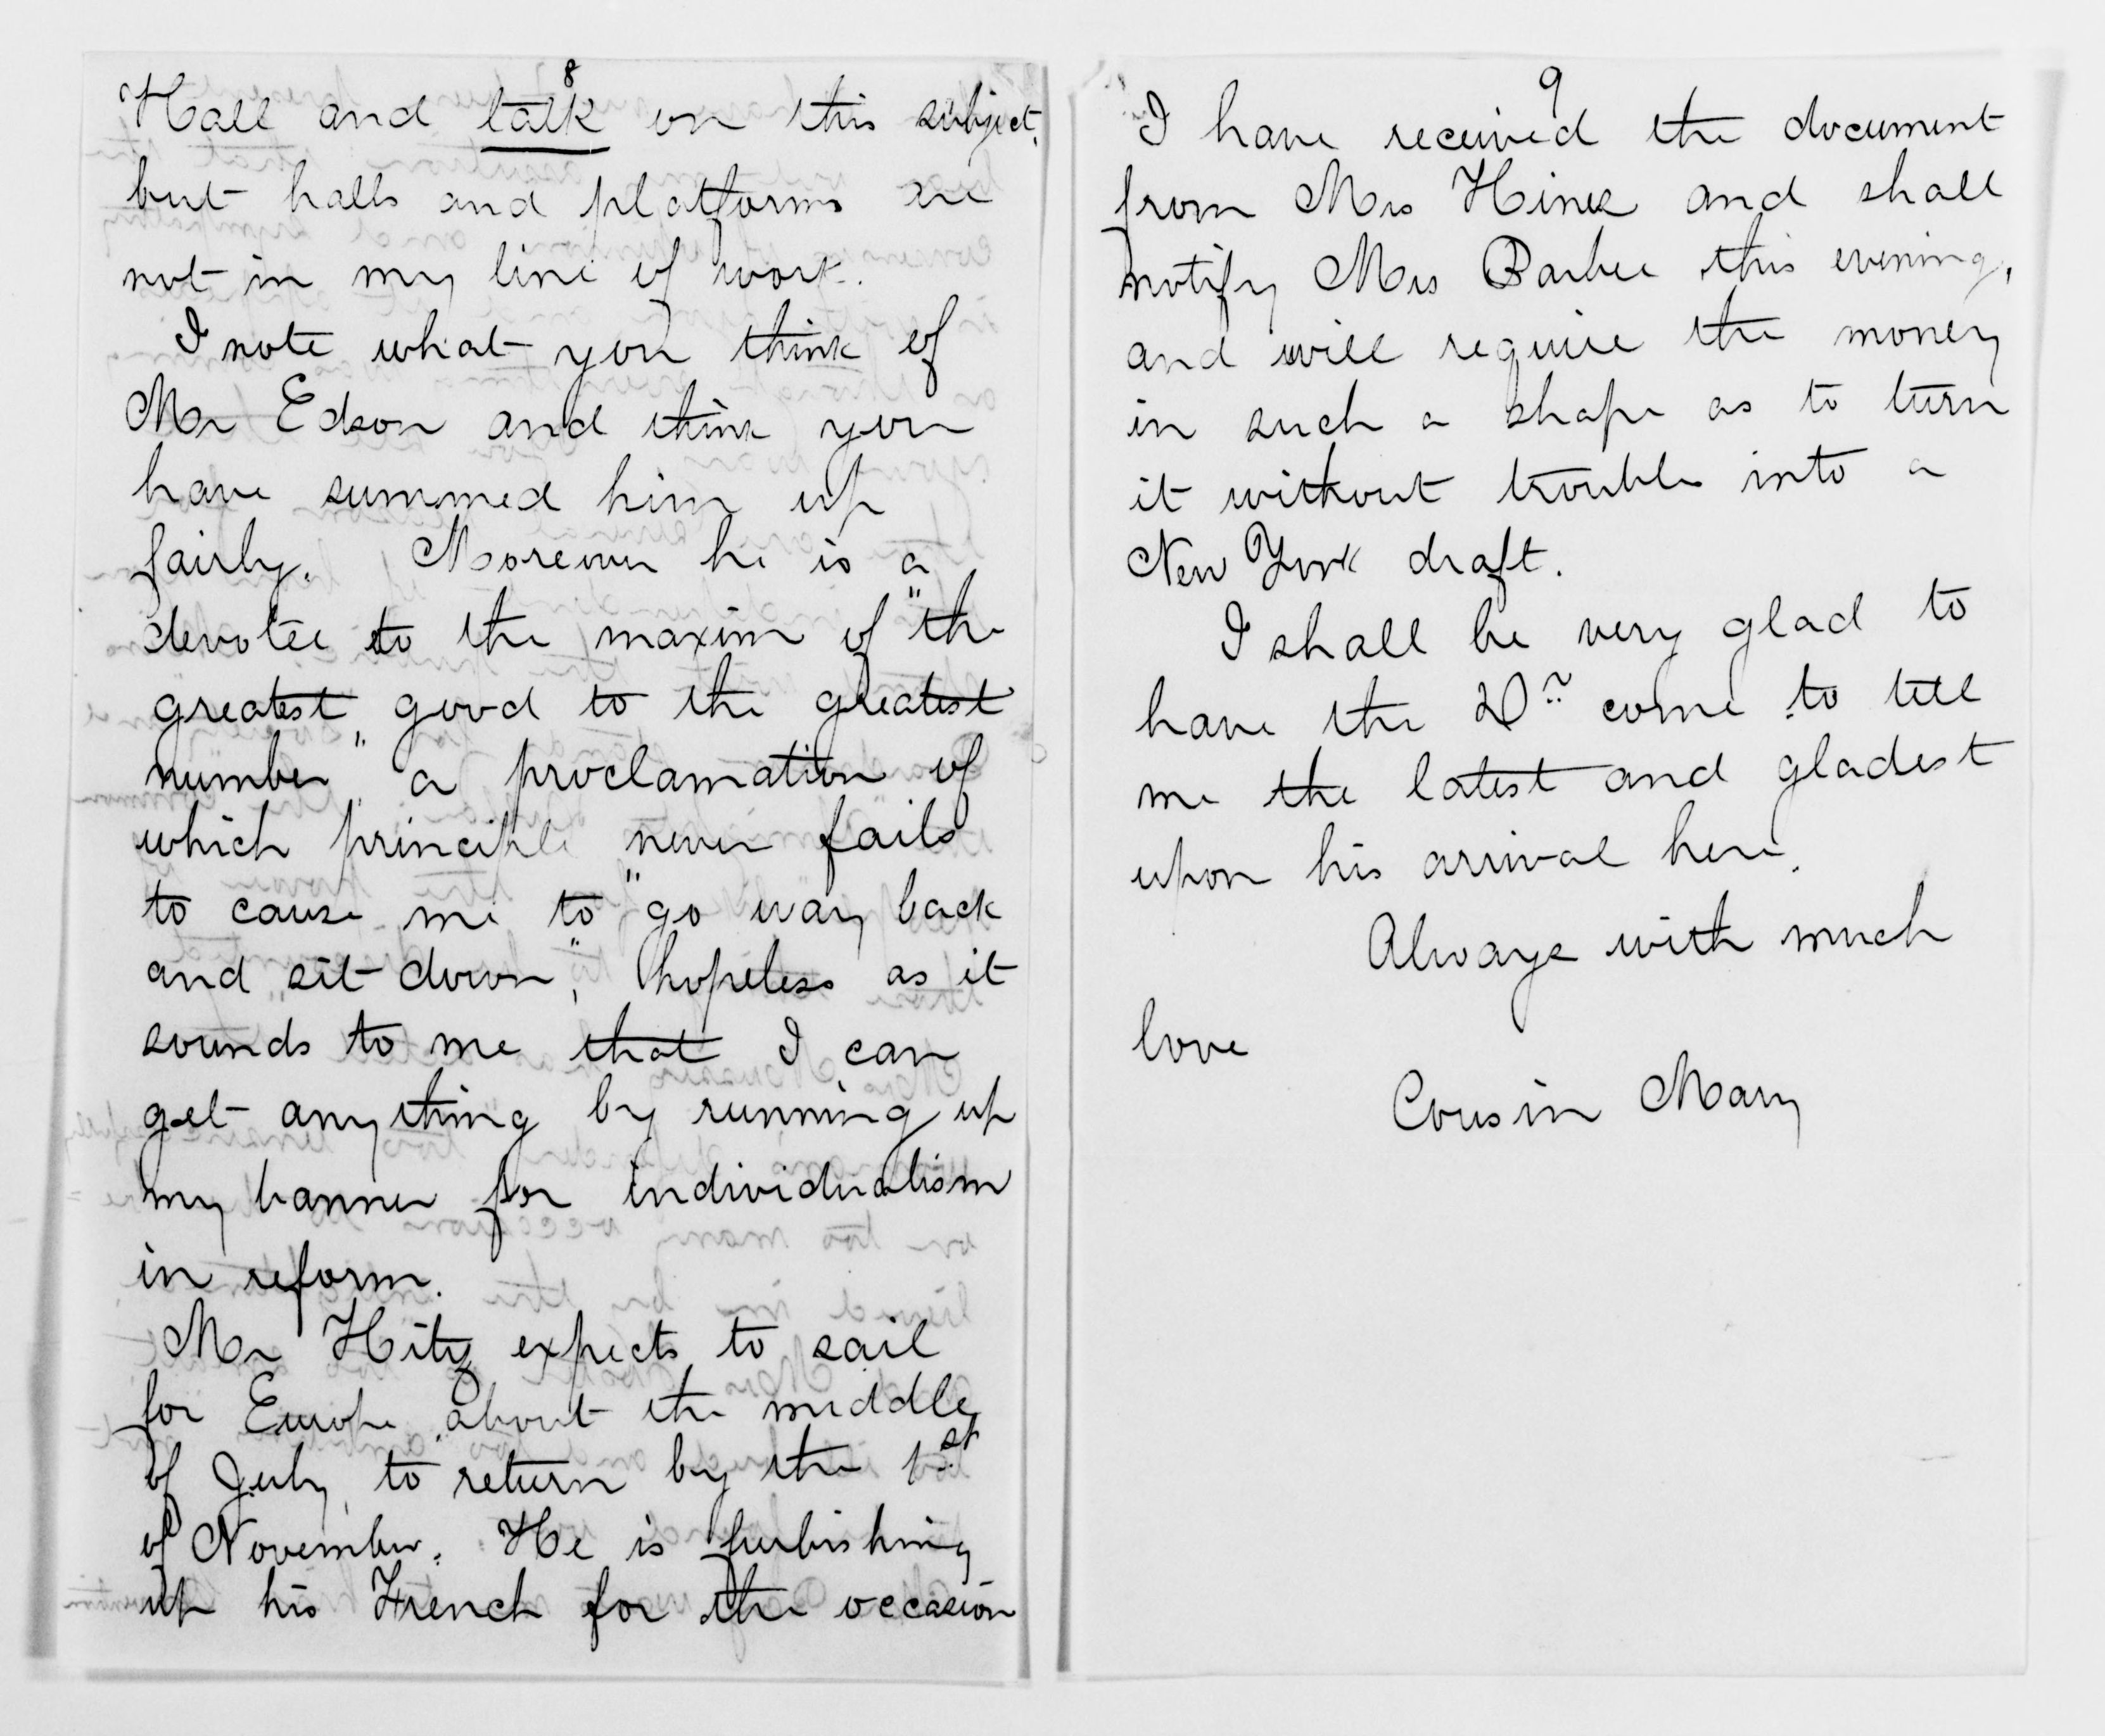 8
Hall and talk on this subject,
but halls and platforms are
not in my line of work.
I note what you think of
Mr Edson and think you
have summed him up
fairly. Moreover he is a
devotee to the maxim of "the
greatest good to the greatest
number" a proclamation of
which principle never fails
to cause me to "go way back
and sit down", hopeless as it
sounds to me that I can
get anything by running up
my banner for individualism
in reform.
Mr Hitz expects to sail
for Europe about the middle
of July, to return by the 1st
of November. He is furbishing
up his French for the occasion
9
I have received the document
from Mrs Hines and shall
notify Mrs Barbee this evening,
and will require the money
in such a shape as to turn
it without trouble into a
New York draft.
I shall be very glad to
have the Dr come to tell
me the latest and gladest
upon his arrival here.
Always with much
love
Cousin Mary